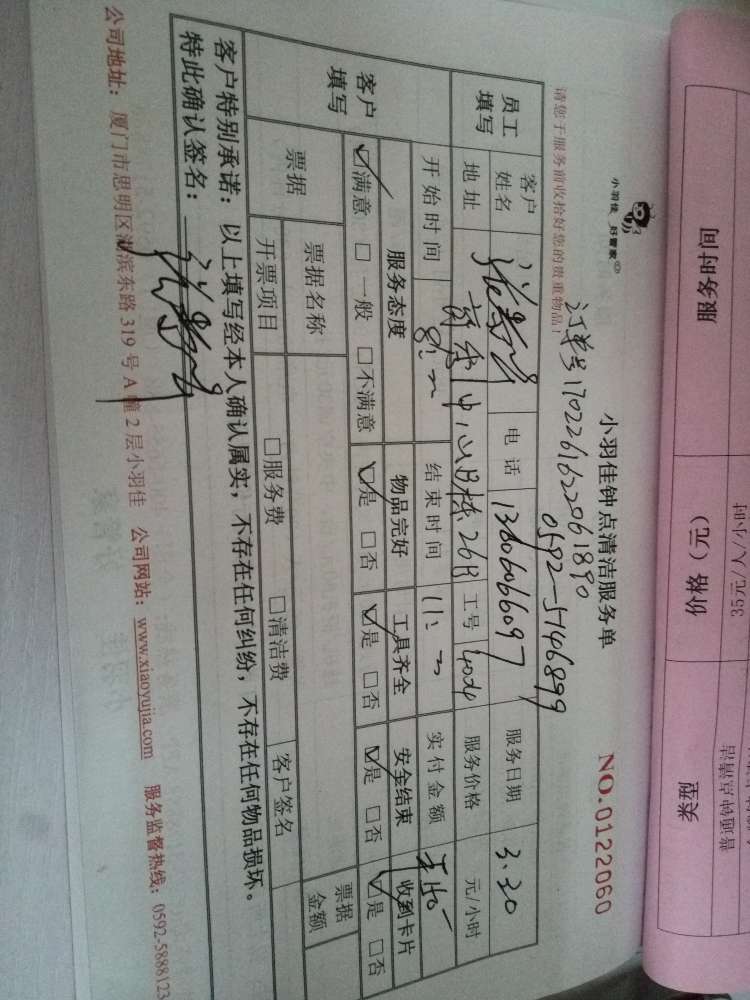 服务时间 价格（元） 类型
35元/人/小时
小羽佳 好管家
小羽佳钟点清洁服务单 NO.0122060
请您于服务前收拾好您的贵重物品！
订单号1702261622061890
0592-5746899
员工填写 客户姓名 电话 13606066097 服务日期 3.20
地址 中心B栋26B 工号 服务价格 元/小时
开始时间 8: 结束时间 11: 实付金额
客户填写 服务态度 物品完好 工具齐全 安全结束 收到卡片
☑满意 □一般 □不满意 ☑是 □否 ☑是 □否 ☑是 □否 ☑是 □否
票据 票据名称 票据金额
开票项目 □服务费 □清洁费 客户签名
客户特别承诺：以上填写经本人确认属实，不存在任何纠纷，不存在任何物品损坏。
特此确认签名：
公司地址：厦门市思明区湖滨东路319号A幢2层小羽佳 公司网站：www.xiaoyujia.com 服务监督热线：0592-5888123